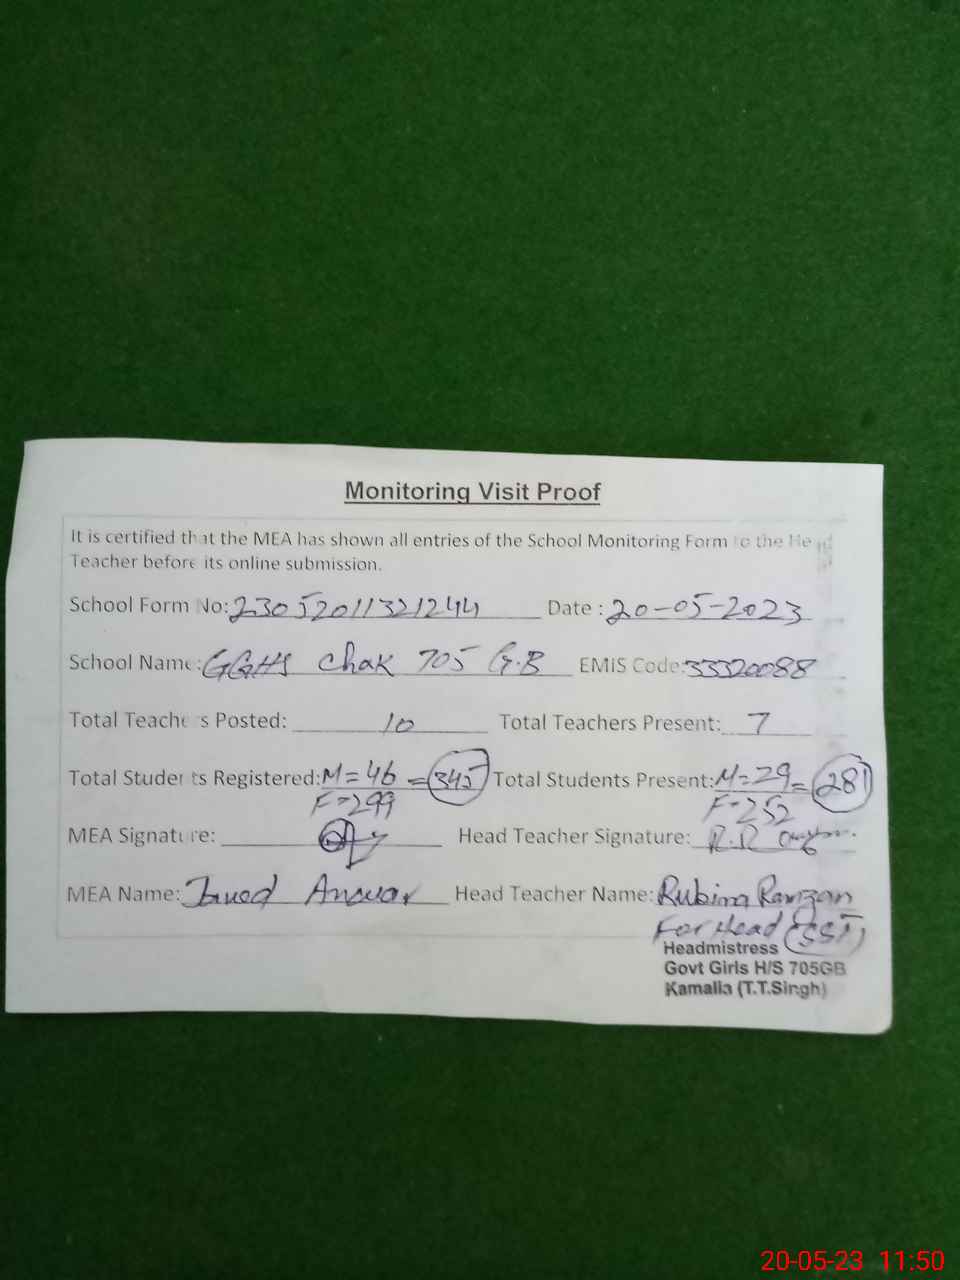 Monitoring Visit Proof
It is certified that the MEA has shown all entries of the School Monitoring Form to the Head
Teacher before its online submission.
School Form No: 23052011321244 Date : 20-05-2023
School Name: GGHS Chak 705 G.B EMIS Code: 33320088
Total Teachers Posted: 10 Total Teachers Present: 7
Total Students Registered: M=46 = 345 Total Students Present: M=29 = 281
F=299 F=252
MEA Signature: Head Teacher Signature:
MEA Name: Javed Anwar Head Teacher Name: Rubina Ramzan
For Head (SST)
Headmistress
Govt Girls H/S 705GB
Kamalia (T.T.Singh)
20-05-23 11:50